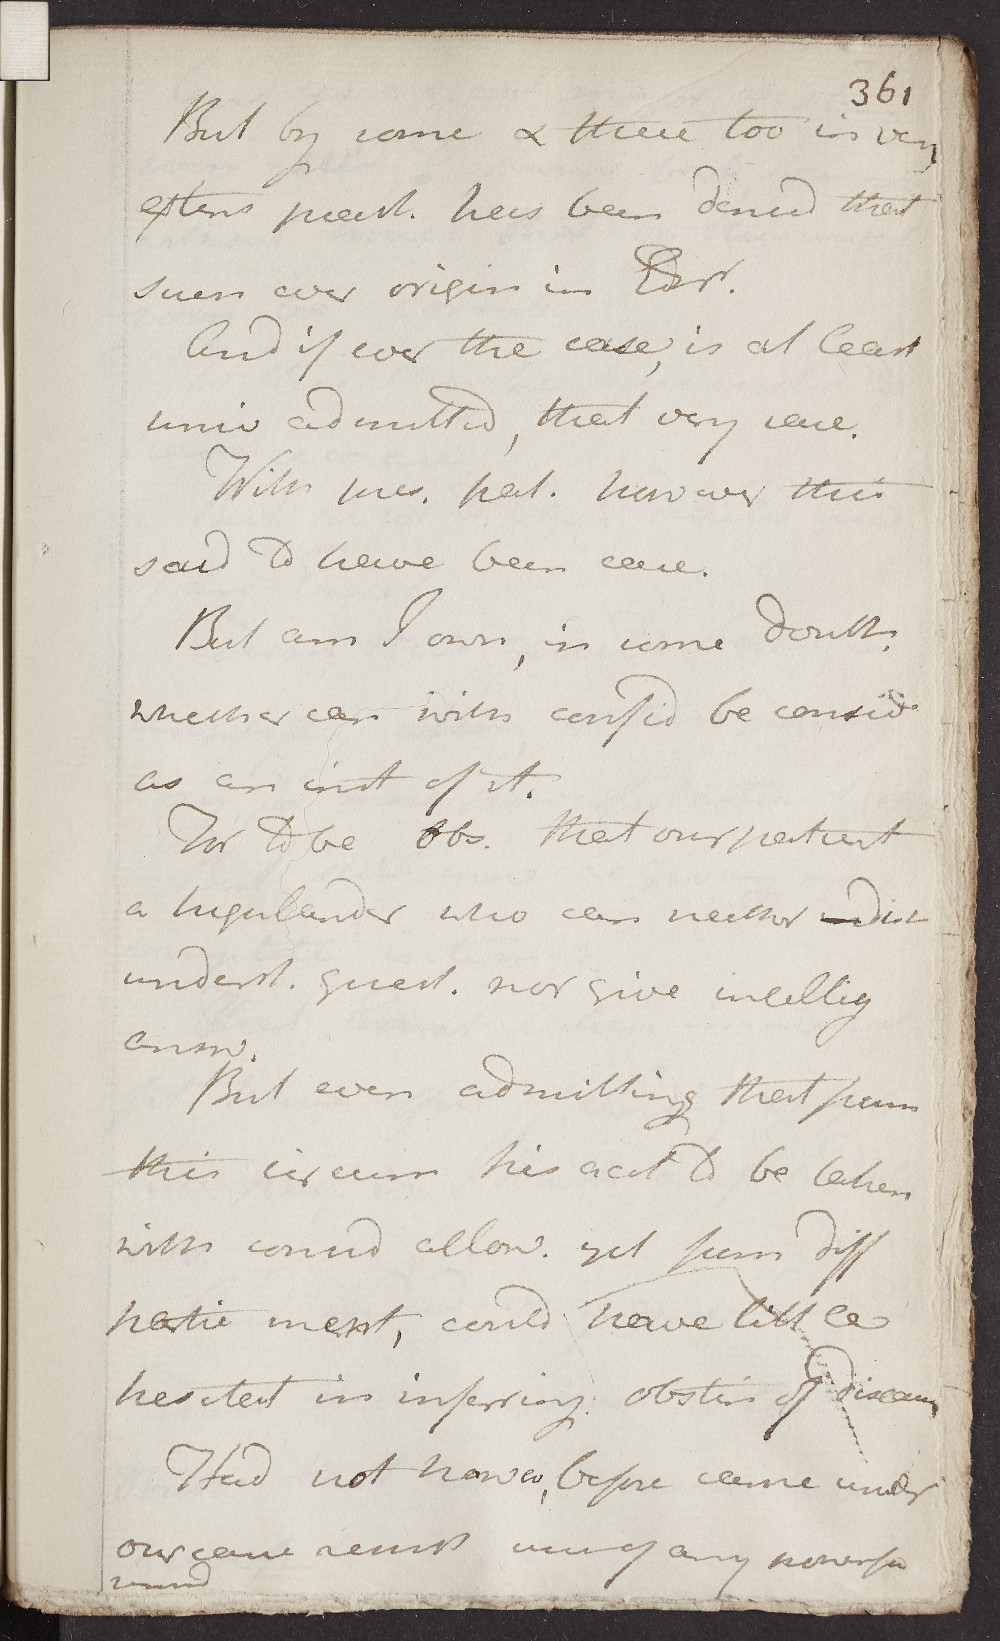 361
But by some & these too in very
extens pract. has been denied that
seen ever origin in Edr.
And if ever the case, is at least
univ admitted, that very rare.
With pres. pat. however this
said to have been case.
But am I own, in some doubt,
whether can with confid be consid
as an inst of it.
For to be obs. that our patient
a highlander who can neither dist
underst. quest. nor give intellig
answ.
But even admitting that from
this circum his acct to be taken
with consid allow. yet from diff
partic ment, could have little
hesitat in inferring obstin of disease
Had not howev, before came under
our care remist use of any powerfu